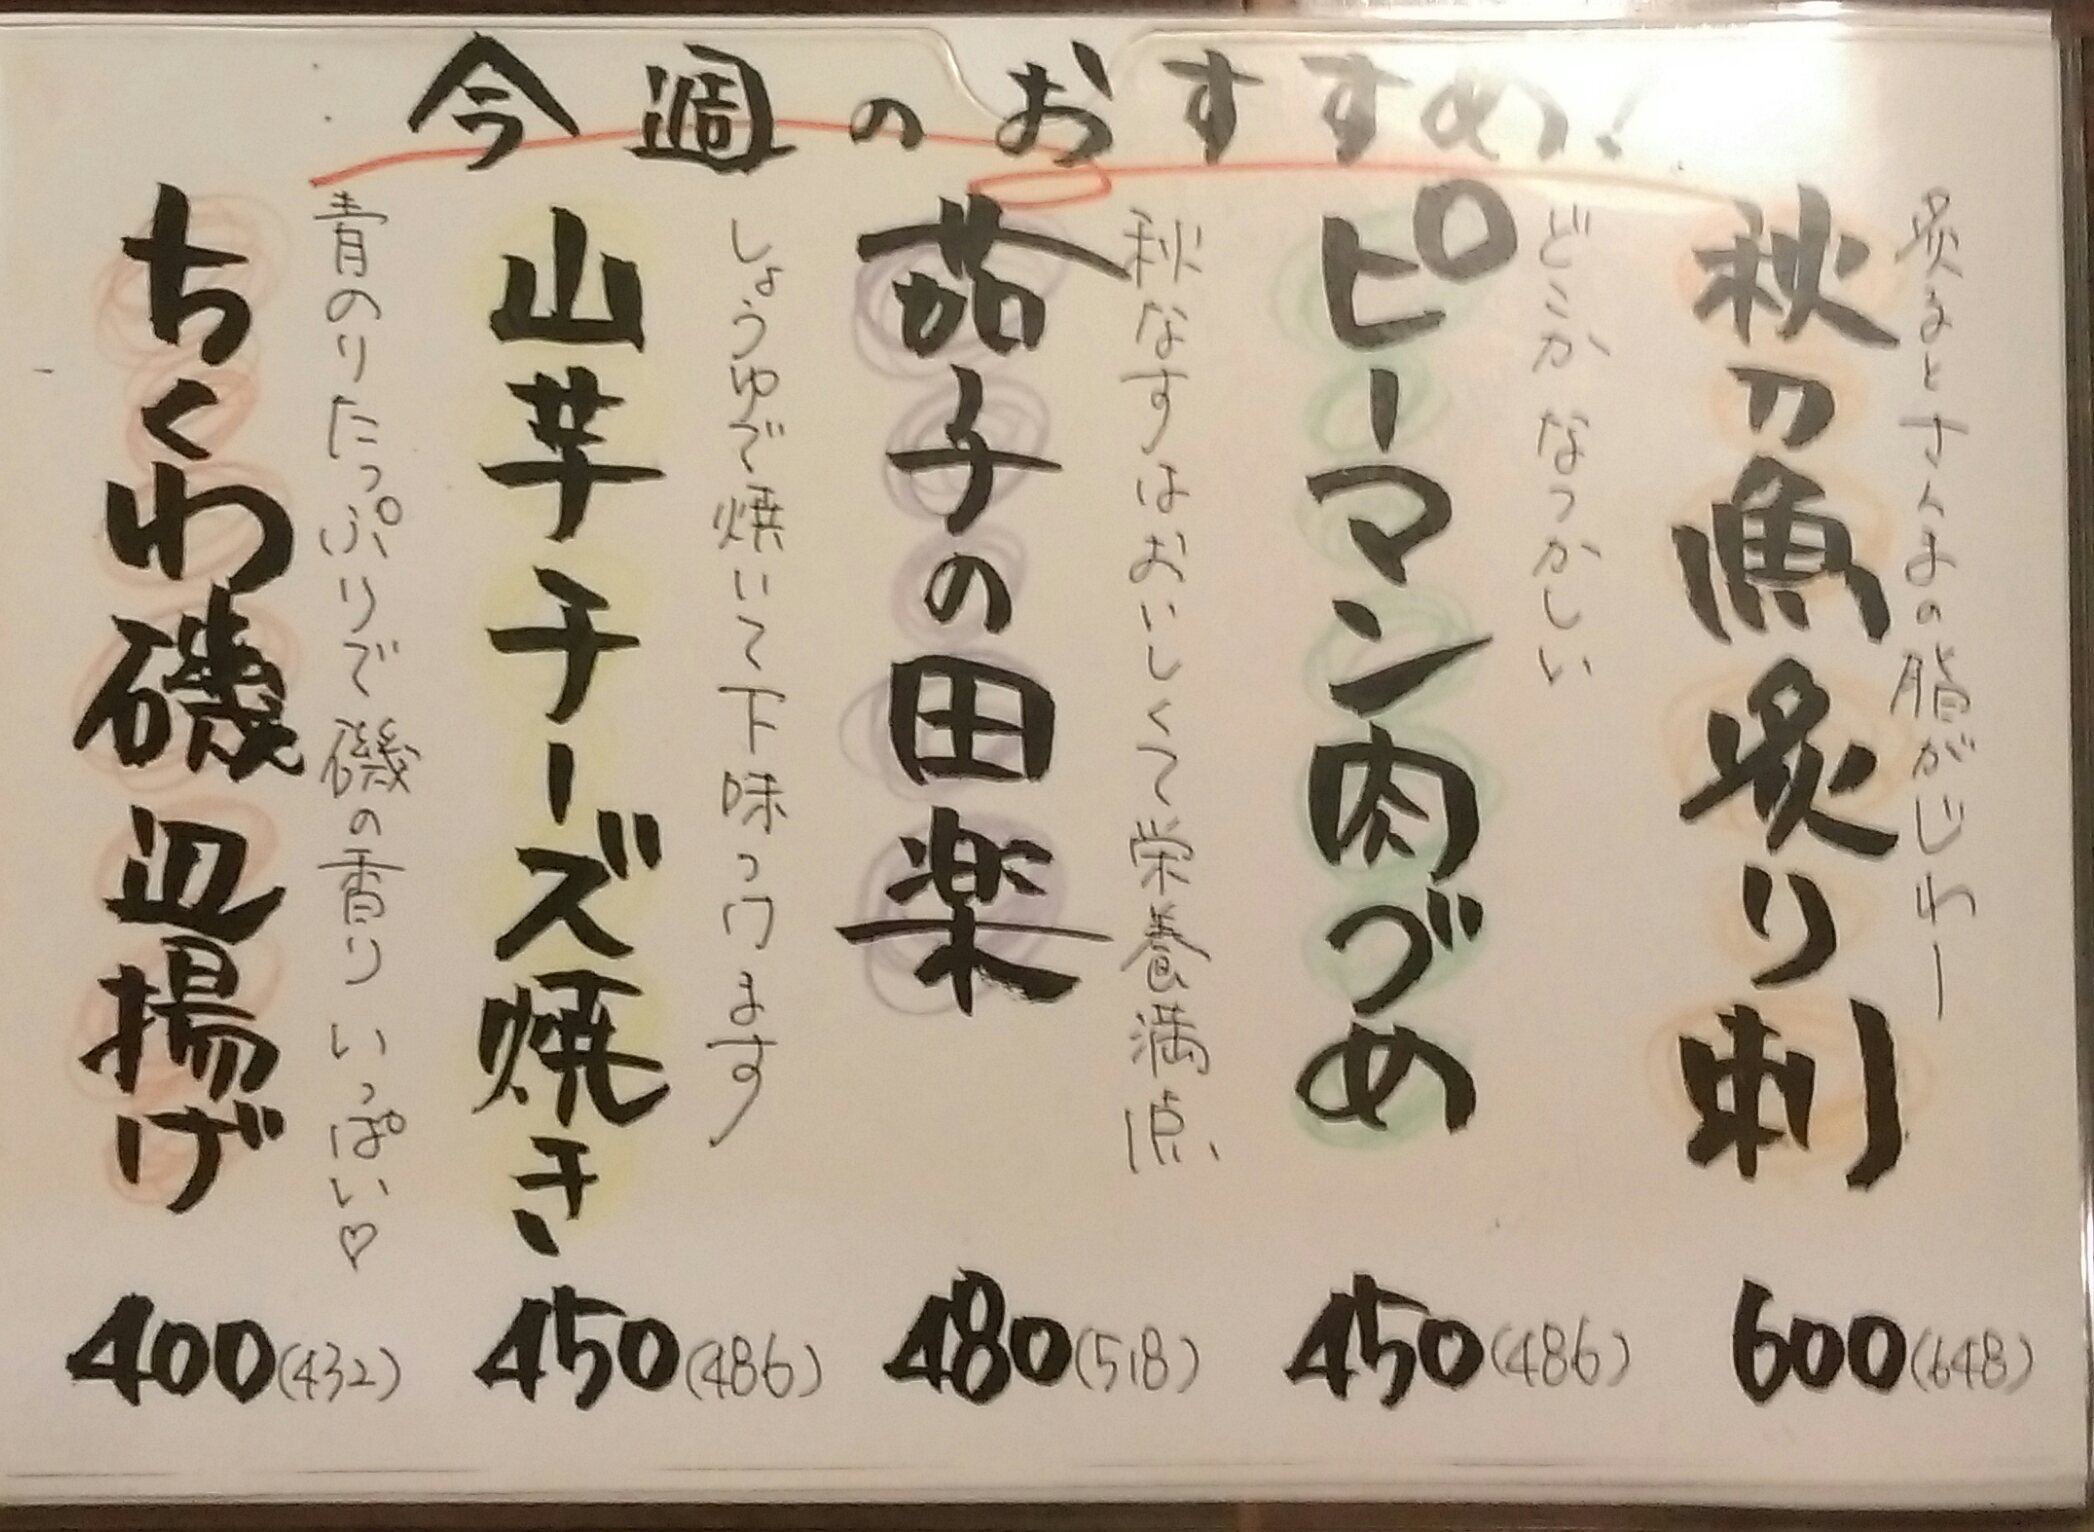 今週のおすすめ!
炙るとさんまの脂がじわー
秋刀魚炙り刺
600(648)
どこかなつかしい
ピーマン肉づめ
450(486)
秋なすはおいしくて栄養満点
茄子の田楽
480(518)
しょうゆで焼いて下味つけます
山芋チーズ焼き
450(486)
青のりたっぷりで磯の香りいっぱい♡
ちくわ磯辺揚げ
400(432)